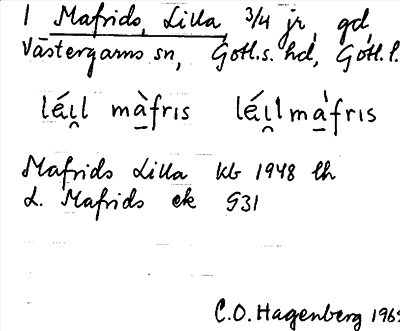 1 Mafrids, Lilla 3/4 jr, gd,
Västergarns sn, Gotl.s. hd, Gotl. l.
léɩ̯ll màfrɩs léɩ̯ll máfrɩs
Mafrids Lilla kb 1948 lh
L. Mafrids ek 931
C.O. Hagenberg 1969